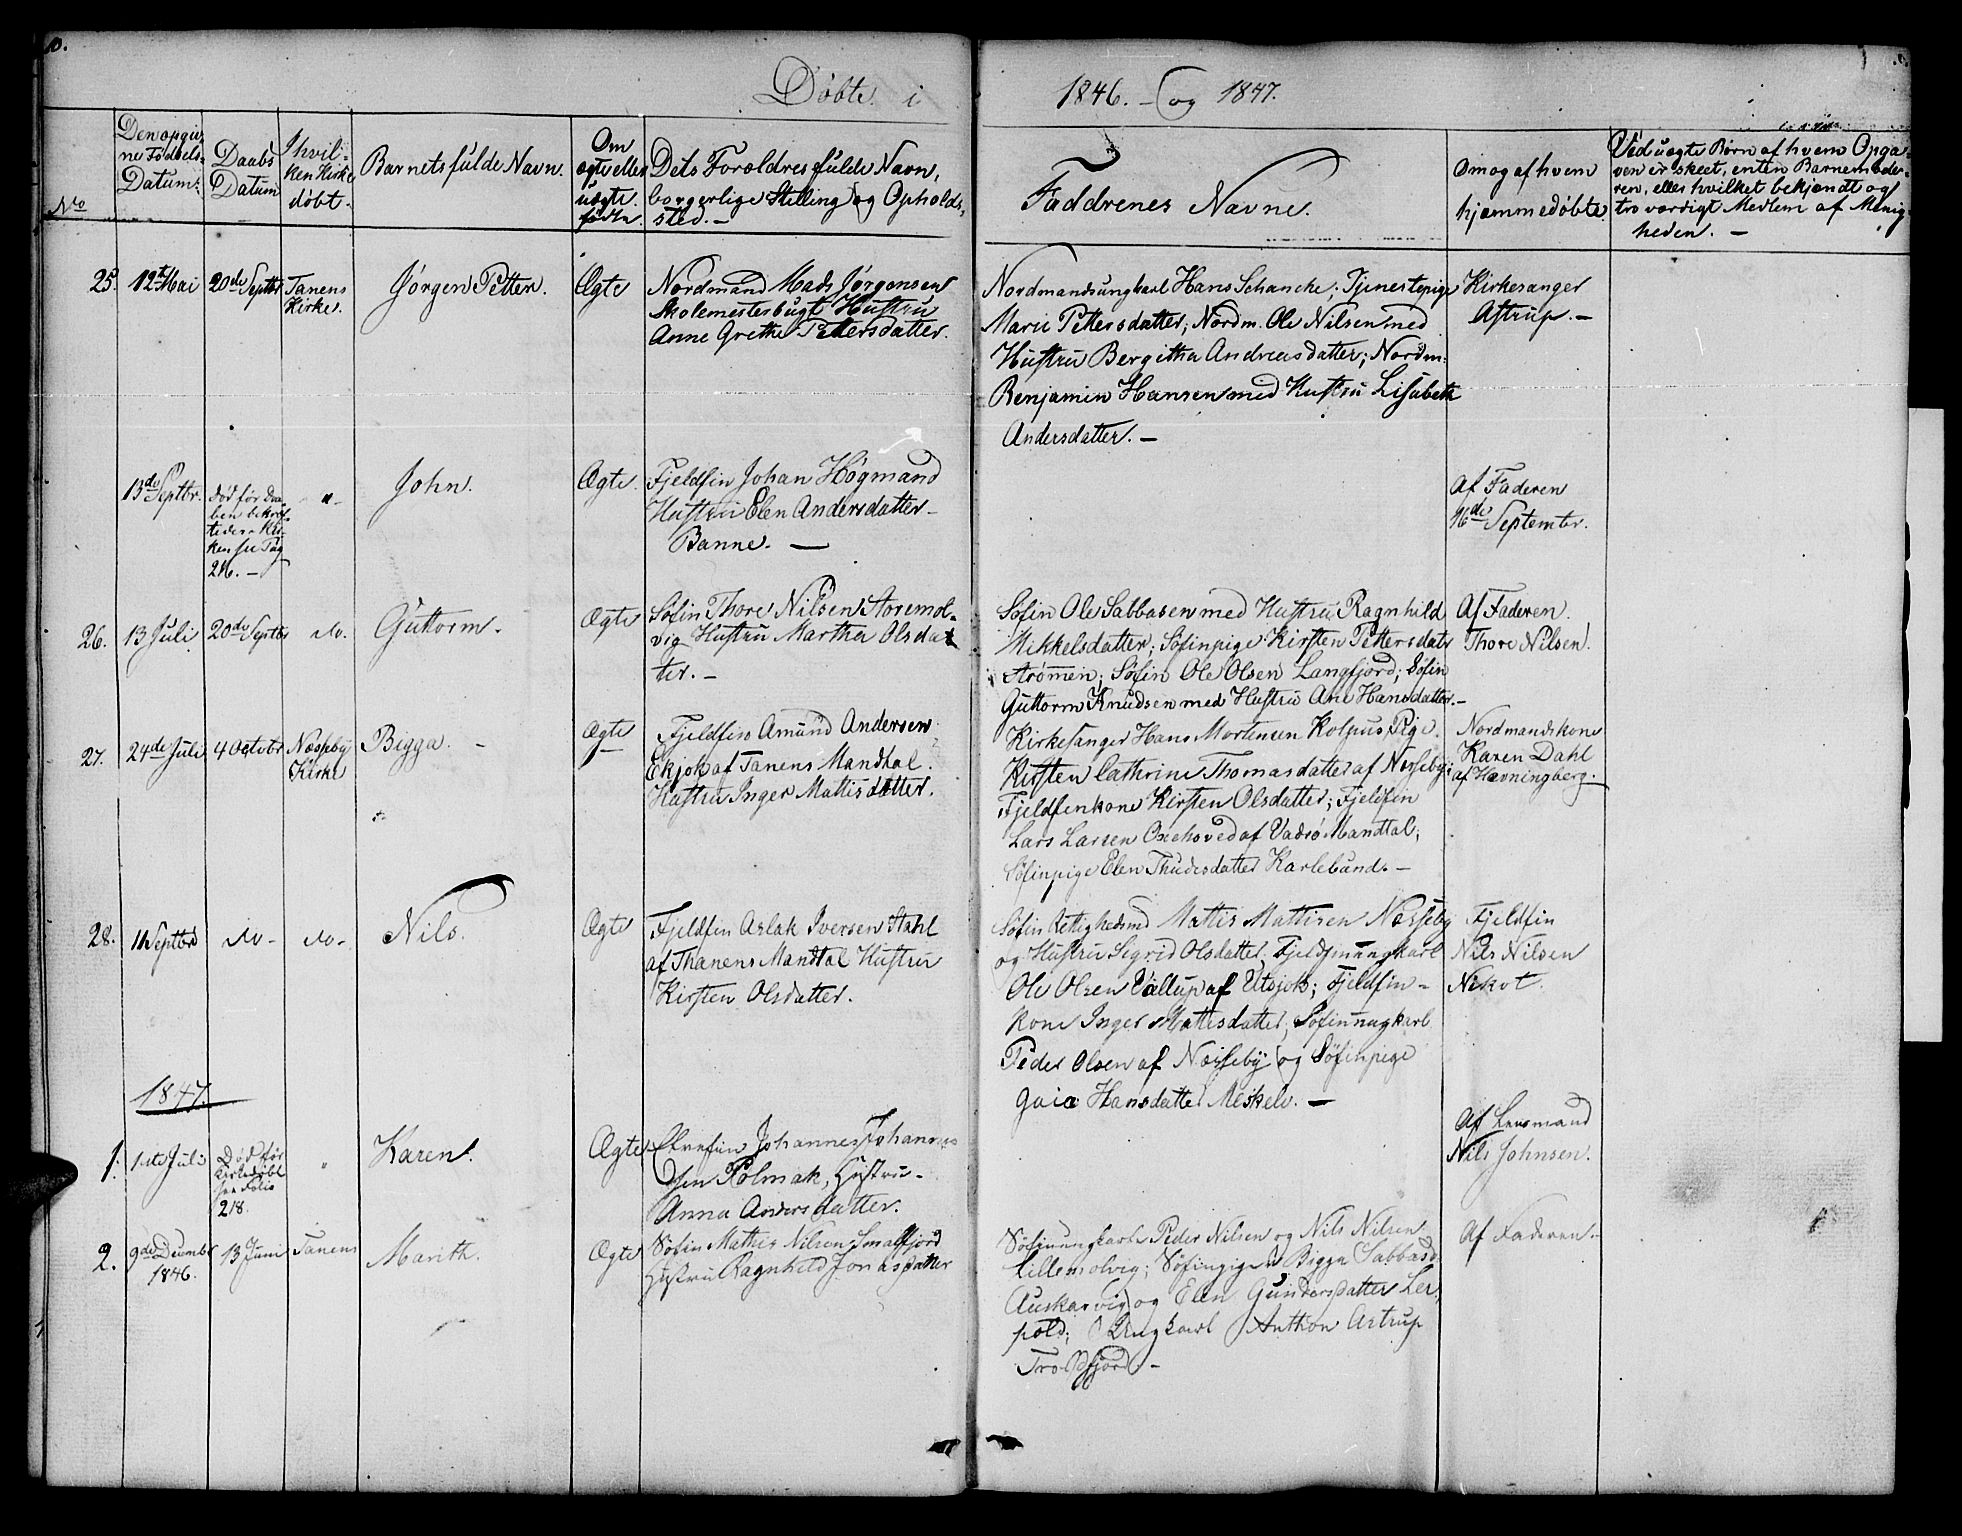 Døbte i 1846. og 1847.
No
Den opgiv-
ne Fødsels-
Datum.
Daabs
Datum
I hvil-
ken Kirke
døbt.
Barnets fulde Navn.
Om
ægte eller
uægte
født.
Dets Foroldres fulde Navn,
borgerlige Stilling og Opholds-
sted. -
Faddrenes Navne.
Om og af hvem
hjemmedøbt
Ved uægte Børn af hvem Opga-
ven er skeet, enten Barnemode-
ren, eller hvilket bekjendt og
troværdigt Medlem af Menig-
heden. -
25. 12te Mai 20de Septbr Tanens
Kirke.
Jørgen Petter.
Ægte
Nordmand Mads Jørgensen
Skolemesterbugt Hustru
Anne Grethe Pettersdatter.
Nordmandsungkarl Hans Schanche; Tjenestepige
Marie Pettersdatter; Nordm. Ole Nilsen med
Hustru Bergitha Andreasdatter; Nordm.
Benjamin Hansen med Hustru Lisabeth
Andersdatter. -
Kirkesanger
Astrup. -
13de Septbr.
død før Daa-
ben bekræf-
tedes i Kir-
ken see Pag
216. -
"
John.
Ægte.
Fjeldfin Johan Høgmand
Hustru Elen Andersdatter -
Banne. -
Af Faderen
16de September.
26. 13 Juli 20de Septbr do.
Guttorm.
Ægte
Søfin Thore Nilsen Aremol-
vig Hustru Martha Olsdat
ter. -
Søfin Ole Sabbasen med Hustru Ragnhild
Mikkelsdatter; Søfinpige Kirsten Pettersdatr
Strømen; Søfin Ole Olsen Langfjord; Søfin
Guttorm Knudsen med Hustru Ane Hansdatter. -
Af Faderen.
Thore Nilsen.
27. 24de Juli 4 Octobr Næsseby
Kirke
Bigga. -
Ægte
Fjeldfin Amund Andersen
Ekjok af Tanens Mandtal.
Hustru Inger Mattisdatter.
Kirkesanger Hans Mortensen Kolpus, Pige
Kirsten Cathrine Thomasdatter af Næsseby;
Fjeldfinkone Kirsten Olsdatter; Fjeldfin
Lars Larsen Oxehoved af Vadsø Mandtal;
Søfinpige Elen Thudesdatter Karlebund. -
Nordmandskone
Karen Dahl
af Havningberg. -
28. 11 Septbr do - do -
Nils.
Ægte
Fjeldfin Aslak Iversen Stahl
af Thanens Mandtal Hustru
Kirsten Olsdatter.
Søfin Rettighedsmd Mattis Mattisen Næsseby
og Hustru Sigrid Olsdatter, Fjeldfinungkarl
Ole Olsen Vallup af Utsjok; Fjeldfin-
kone Inger Mattisdatter, Søfinungkarl
Peder Olsen af Næsseby og Søfinpige
Gaia Hansdatter Meskelv. -
Fjeldfin
Nils Nilsen
Nikot.
1847.
1. 1ste Juli
Død før
kirkedøbt
see Folio
218.
"
Karen.
Ægte
Elvefin Johannes Johannes
sen Polmak, Hustru -
Anna Andersdatter.
Af Lensmand
Nils Johnsen.
2. 9de Decembr
1846.
13 Juni Tanens
Marith.
Ægte
Søfin Mathis Nilsen Smalfjord
Hustru Ragnhild Jonasdatter
Søfinungkarle Peder Nilsen og Nils Nilsen
Lillemolvig; Søfinpiger Bigga Sabbasd
Auskarvig og Elen Gundersdatter Ler-
pold; Ungkarl Anthon Astrup
Troldfjord. -
Af Faderen. -